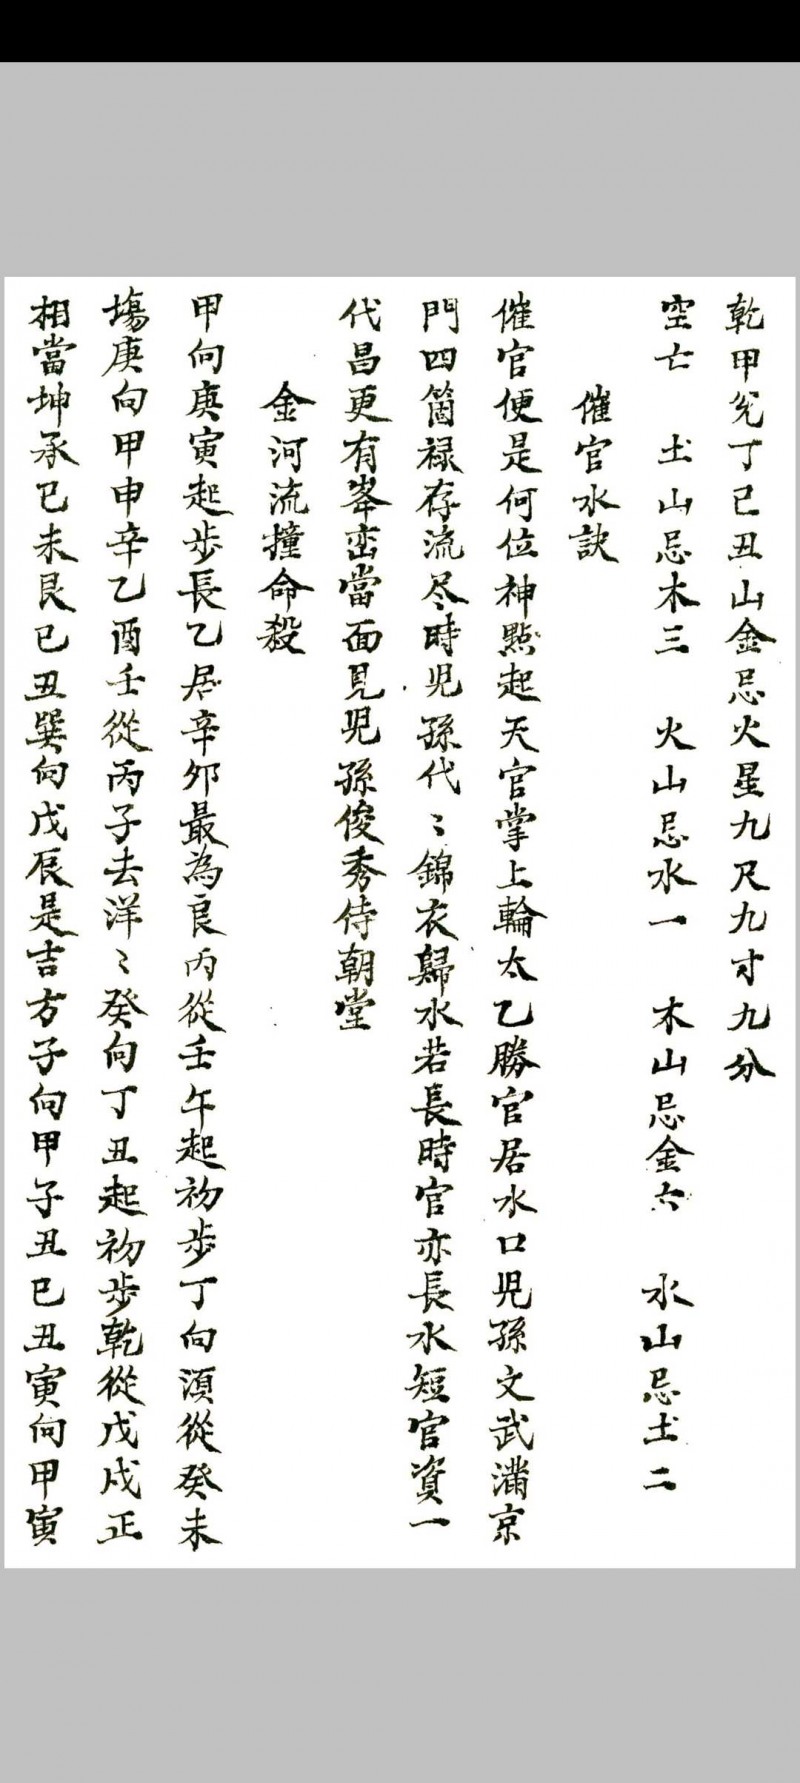 乾甲兊丁巳丑山金忌火星九尺九寸九分
空亡　圡山忌木三　火山忌水一　木山忌金六　水山忌圡二
催官水訣
催官便是何位神點起天官掌上輪太乙勝官居水口児孫文武滿京
門四箇禄存流尽時児孫代〻錦衣歸水若長時官亦長水短官資一
代昌更有峯巒當面見児孫俊秀侍朝堂
金河流撞命殺
甲向庚寅起步長乙居辛夘最為良丙從壬午起初步丁向湏從癸未
塲庚向甲申辛乙酉壬從丙子去洋〻癸向丁丑起初步乾從戊戌正
相當坤承己未艮己丑巽向戊辰是吉方子向甲子丑巳丑寅向甲寅